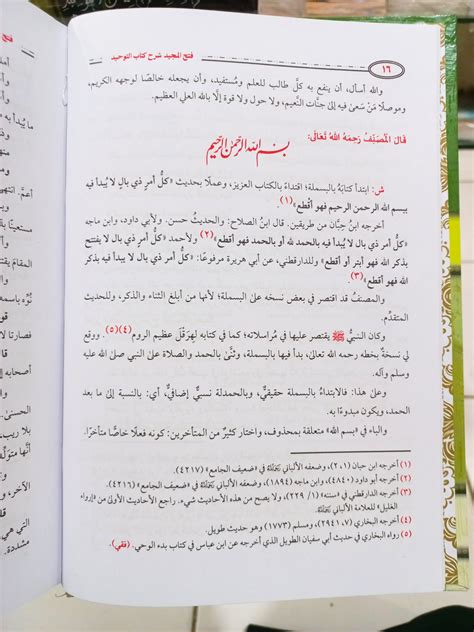 ١٦
فتح المجيد شرح كتاب التوحيد
والله أسأل، أن ينفع به كلَّ طالب للعلم ومُستفيد، وأن يجعله خالصًا لوجهه الكريم،
وموصلًا مَنْ سَعىٰ فيه إلى جنَّات النَّعيم، ولا حول ولا قوة إلَّا بالله العلي العظيم.
قَالَ المُصَنِّفُ رَحِمَهُ اللهُ تَعَالَى:
بسم الله الرحمن الرحيم
ش: ابتدأ كتابَهُ بالبسملة؛ اقتداءً بالكتاب العزيز، وعملًا بحديث «كلُّ أمرٍ ذي بالٍ لا يُبدأ فيه
ببسم الله الرحمن الرحيم فهو أقطع»(١)
أخرجه ابنُ حِبَّان من طريقين. قال ابنُ الصلاح: والحديثُ حسن. ولأبي داود، وابن ماجه
«كلُّ أمرٍ ذي بال لا يُبدأ فيه بالحمد لله أو بالحمد فهو أقطع»(٢) ولأحمد «كلُّ أمر ذي بال لا يفتتح
بذكر الله فهو أبتر أو أقطع» وللدارقطني، عن أبي هريرة مرفوعًا: «كل أمر ذي بال لا يبدأ فيه بذكر
الله فهو أقطع»(٣).
والمصنف قد اقتصر في بعض نسخه على البسملة؛ لأنها من أبلغ الثناء والذكر، وللحديث
المتقدِّم.
وكان النبيُّ ﷺ يقتصر عليها في مُراسلاته؛ كما في كتابه لِهِرَقْلَ عظيم الروم(٤)(٥). ووقع
لي نسخةٌ بخطه رحمه الله تعالىٰ، بدأ فيها بالبسملة، وثنَّىٰ بالحمد والصلاة علىٰ النبي صلى الله عليه
وسلم وآله.
وعلىٰ هذا: فالابتداءُ بالبسملة حقيقيٌّ، وبالحمدلة نسبيٌّ إضافيٌّ، أي: بالنسبة إلىٰ ما بعد
الحمد، يكون مبدوءًا به.
والباء في «بسم الله» متعلقة بمحذوف، واختار كثيرٌ من المتأخرين: كونه فعلًا خاصًّا متأخرًا.
(١) أخرجه ابن حبان (١، ٢)، وضعفه الألباني في «ضعيف الجامع» (٤٢١٧).
(٢) أخرجه أبو داود (٤٨٤٠)، وابن ماجه (١٨٩٤)، وضعفه الألباني في «ضعيف الجامع» (٤٢١٦).
(٣) أخرجه الدارقطني في «سننه» (١/ ٢٢٩)، ولا يصح من هذه الأحاديث شيء. راجع الأحاديث الأولى من «إرواء
الغليل» للعلامة الألباني
(٤) أخرجه البخاري (٧، ٢٩٤١)، ومسلم (١٧٧٣)، وهو حديث طويل.
(٥) رواه البخاري في حديث أبي سفيان الطويل الذي أخرجه عن ابن عباس في كتاب بدء الوحي. (فقي).